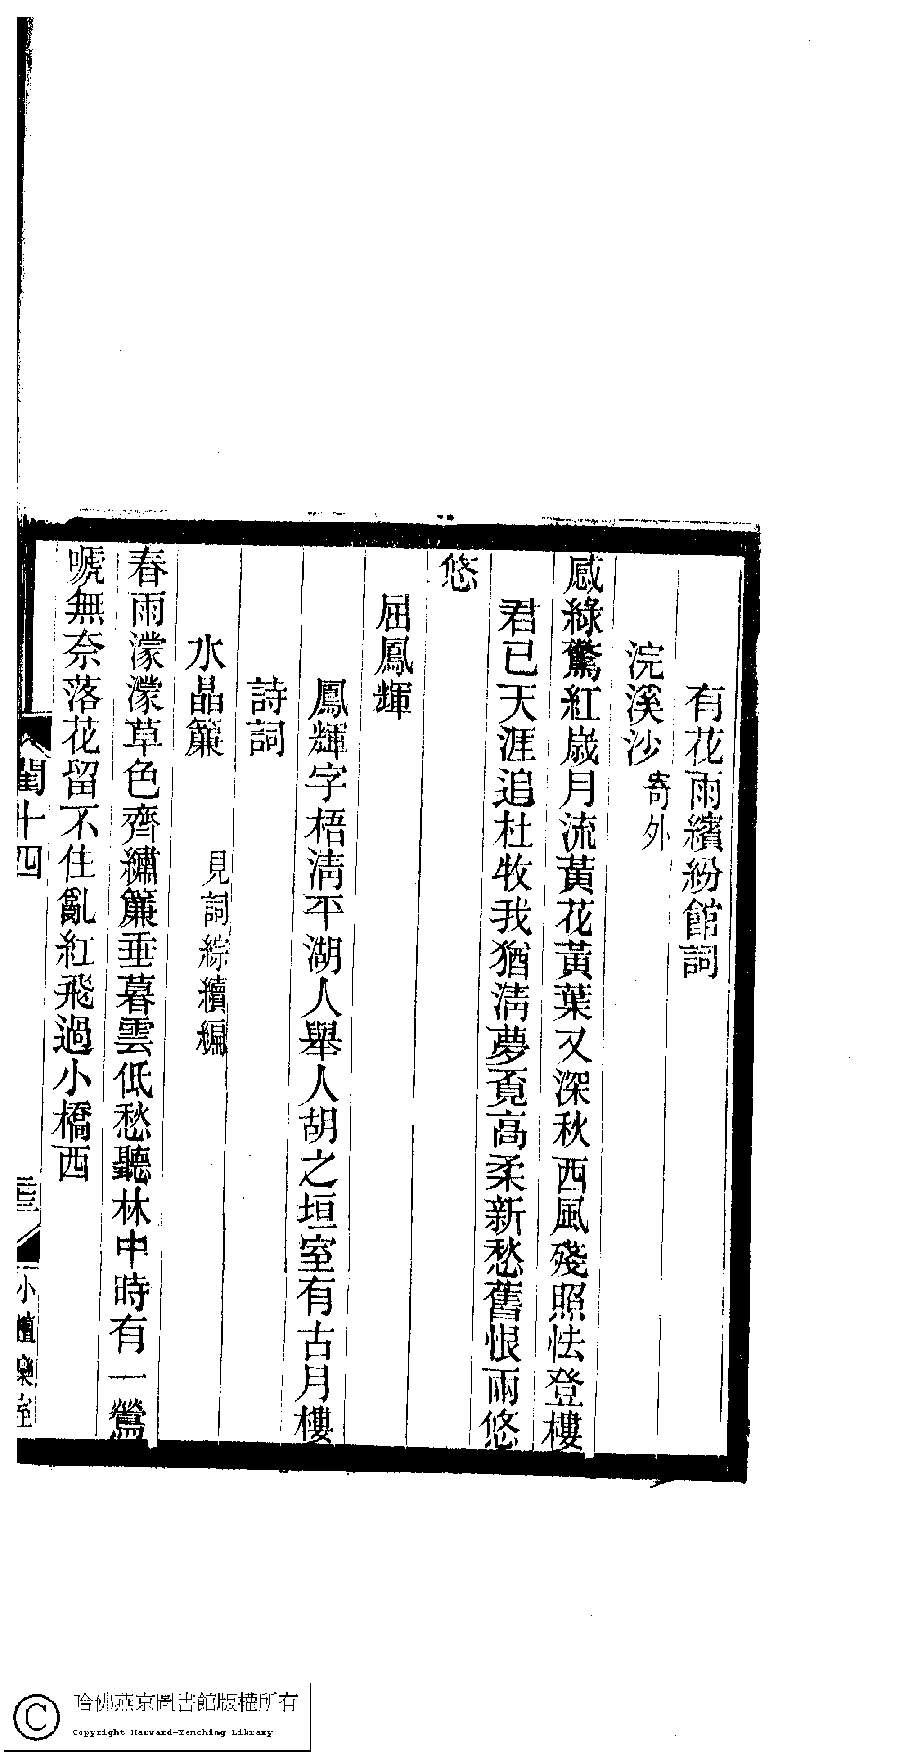 有花雨繽紛館詞
浣溪沙 寄外
感綠驚紅歲月流黃花黃葉又深秋西風殘照怯登樓
君已天涯追杜牧我猶淸夢覓高柔新愁舊恨兩悠
悠
屈鳳輝
鳳輝字梧淸平湖人舉人胡之垣室有古月樓
詩詞
水晶簾 見詞綜續編
春雨濛濛草色齊繡簾垂暮雲低愁聽林中時有一鶯
嗁無奈落花留不住亂紅飛過小橋西
閨十四
小檀欒室
哈佛燕京圖書館版權所有
Copyright Harvard-Yenching Library